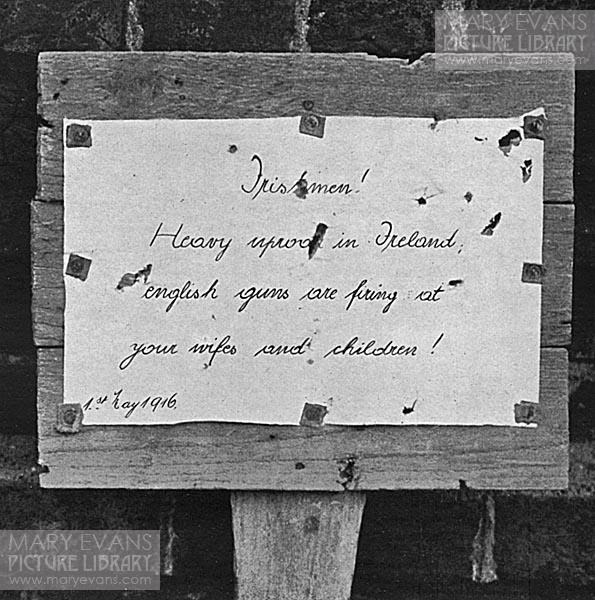 MARY EVANS
PICTURE LIBRARY
www.maryevans.com
Irishmen!
Heavy uproar in Ireland;
english guns are firing at
your wifes and children!
1.st May 1916.
MARY EVANS
PICTURE LIBRARY
www.maryevans.com